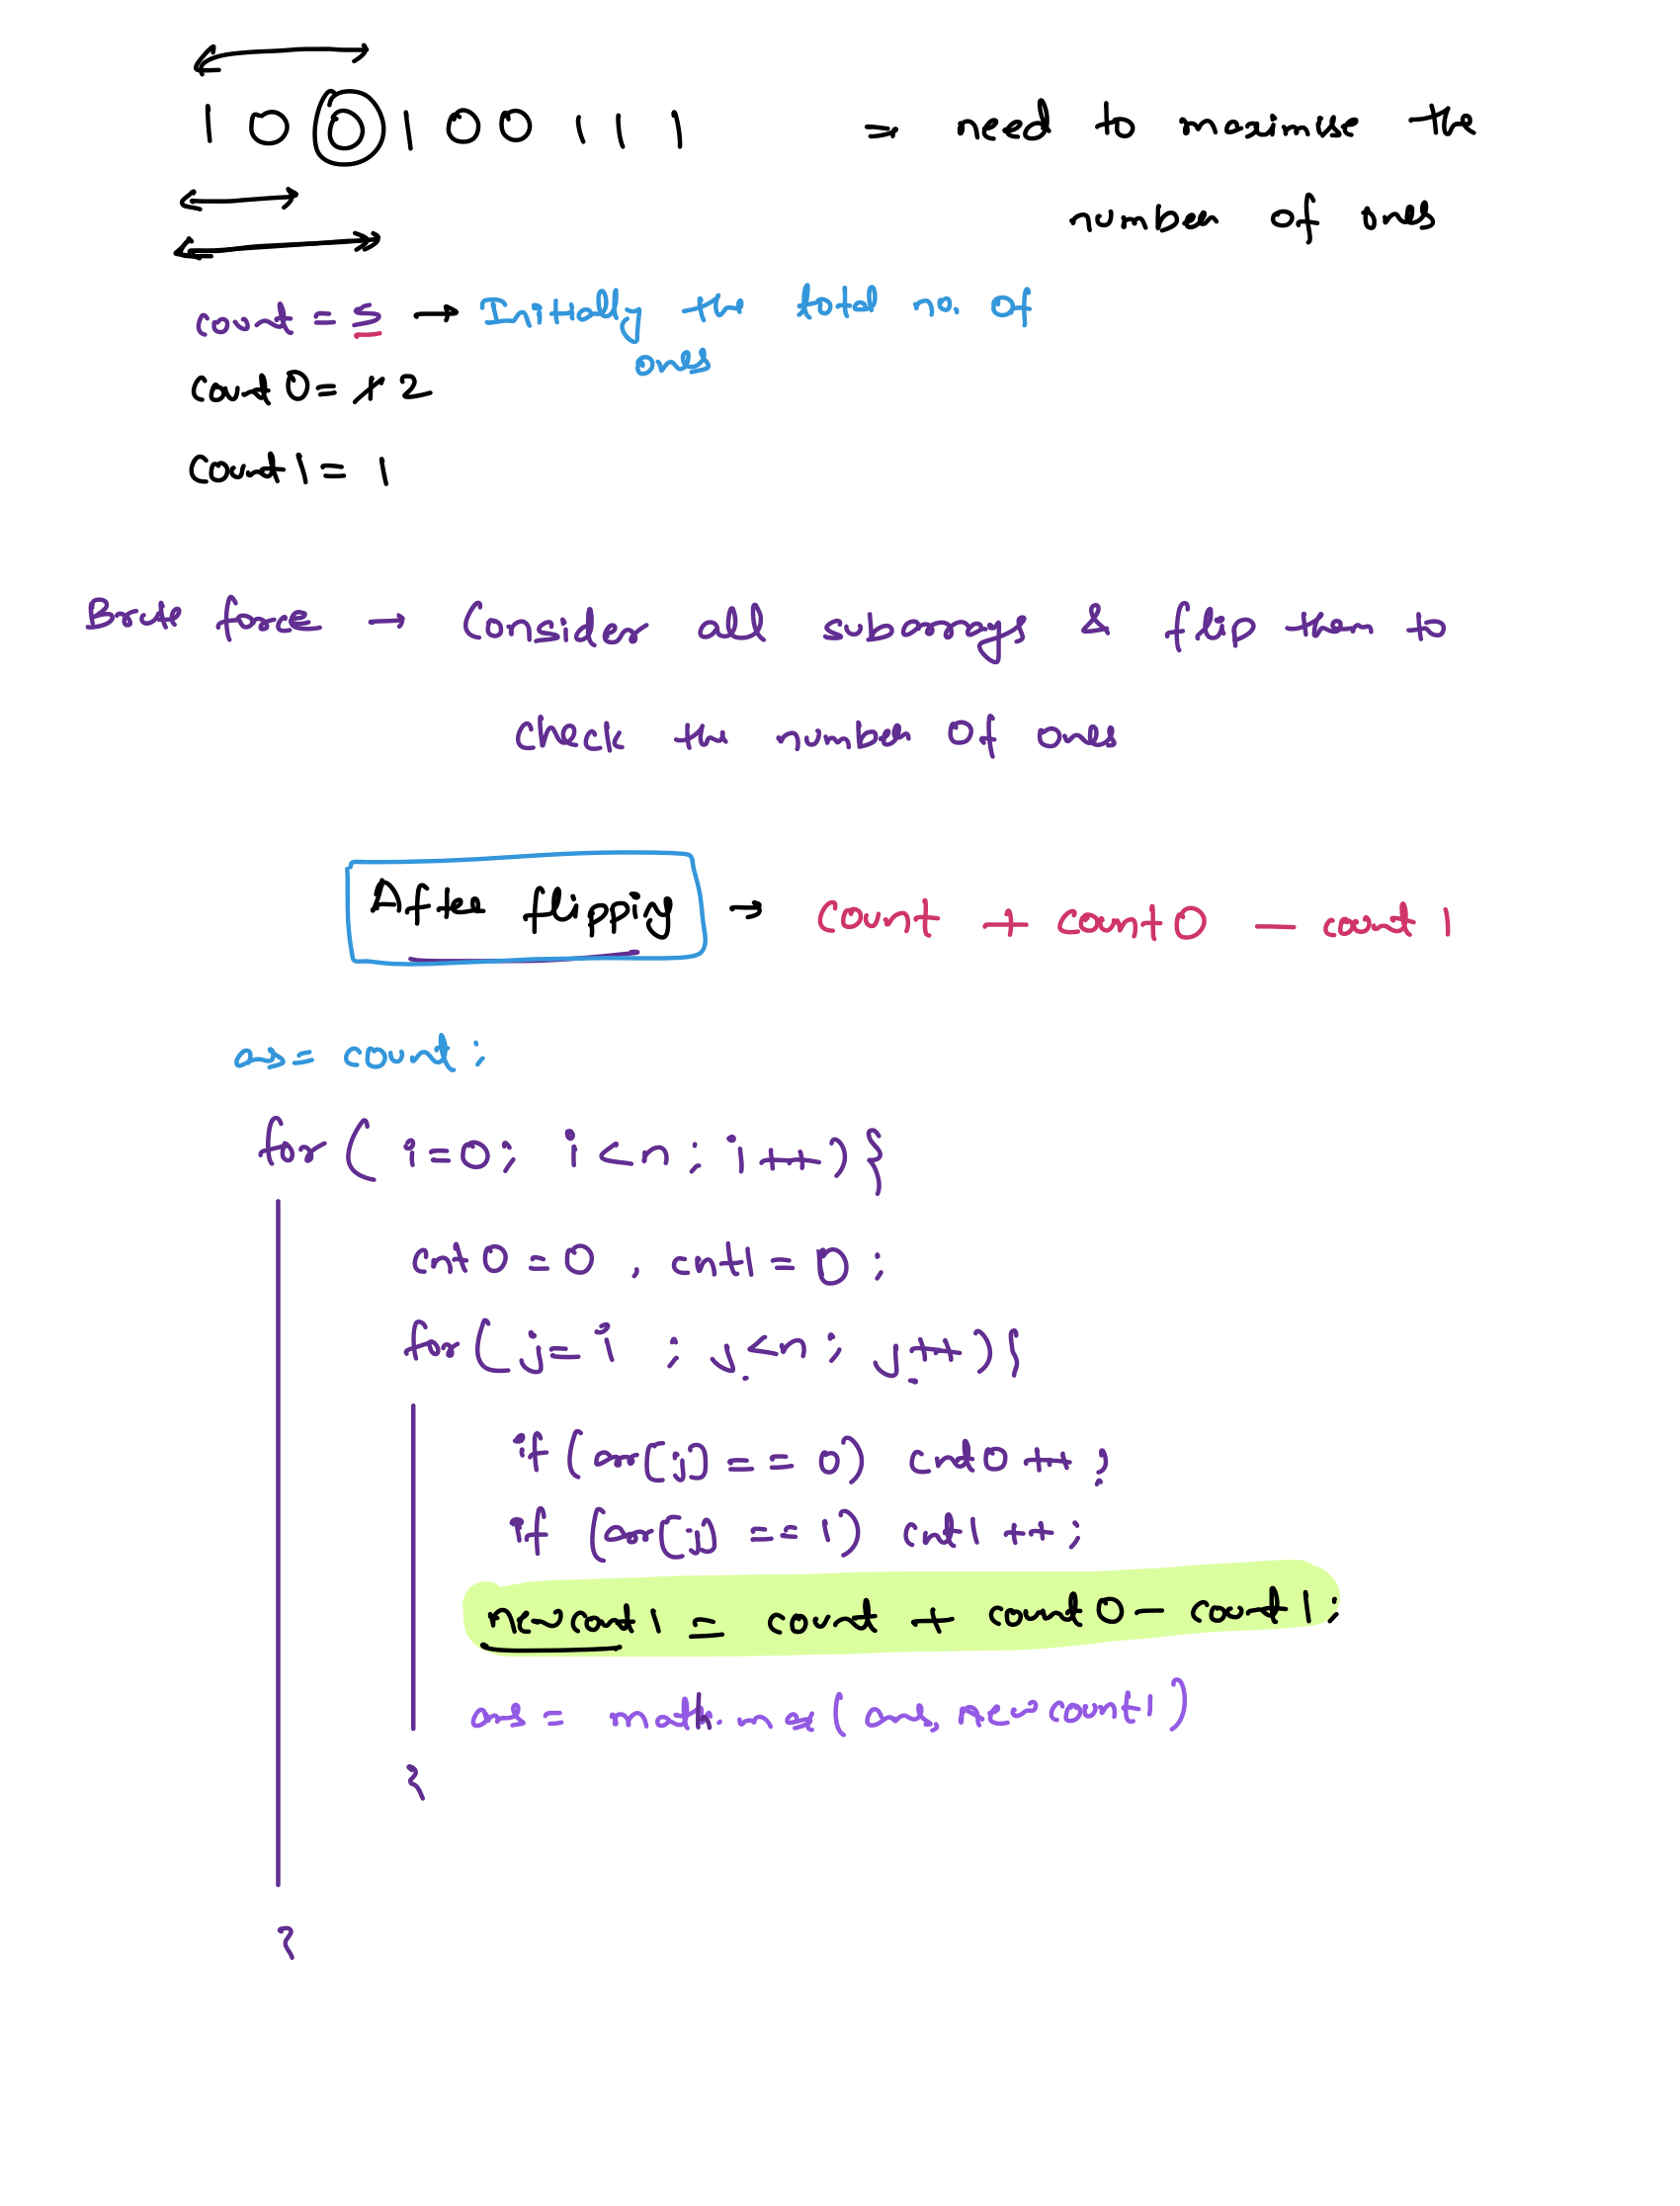 1 0 0 1 0 0 1 1 1 = need to maximise the
number of ones
count = 5 → Initially the total no. of
ones
count 0 = 1 2
count 1 = 1
Brute force → Consider all subarrays & flip them to
check the number of ones
After flipping → count + count 0 - count 1
ans = count ;
for ( i=0; i<n; i++){
cnt 0 = 0 , cnt1 = 0 ;
for ( j= i ; j<n ; j++){
if (arr[j] == 0) cnt0 ++ ;
if (arr[j] == 1) cnt1 ++ ;
newcount1 = count + count 0 - count 1 ;
ans = math.max( ans, newcount1 )
}
}